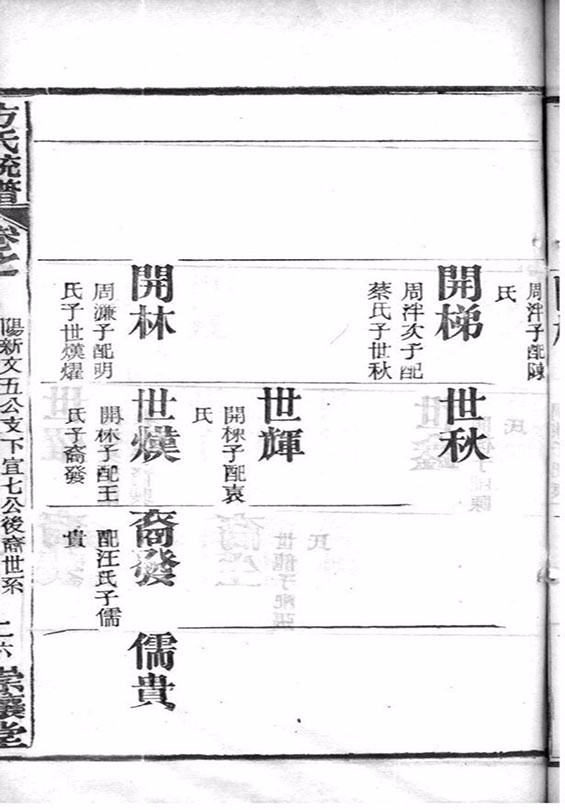 周泮子配陳
氏
開梯
周泮次子配
蔡氏子世秋
開林
周濂子配明
氏子世熯燿
世秋
世輝
開棟子配袁
氏
世熯
開林子配王
氏子裔發
裔發
配汪氏子儒
貴
儒貴
方氏統譜
卷之
陽新文五公支下宜七公後裔世系
二六
崇讓堂